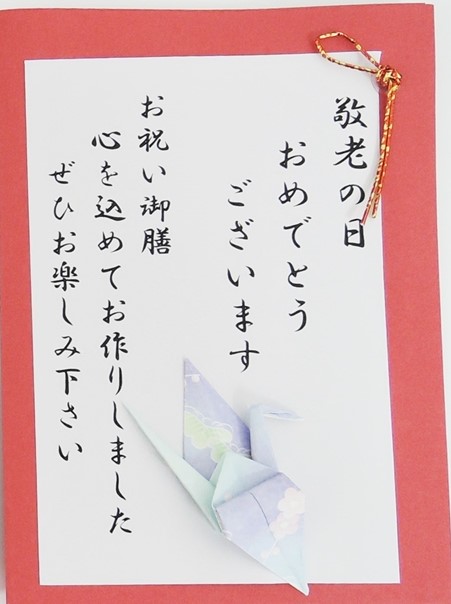 敬老の日
おめでとう
ございます
お祝い御膳
心を込めてお作りしました
ぜひお楽しみ下さい